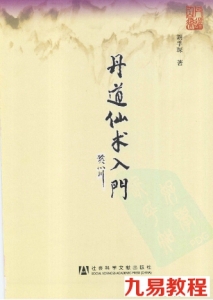 著
丹道仙术入門
社会科学文献出版社
SOCIAL SCIENCES ACADEMIC PRESS (CHINA)
九易教程